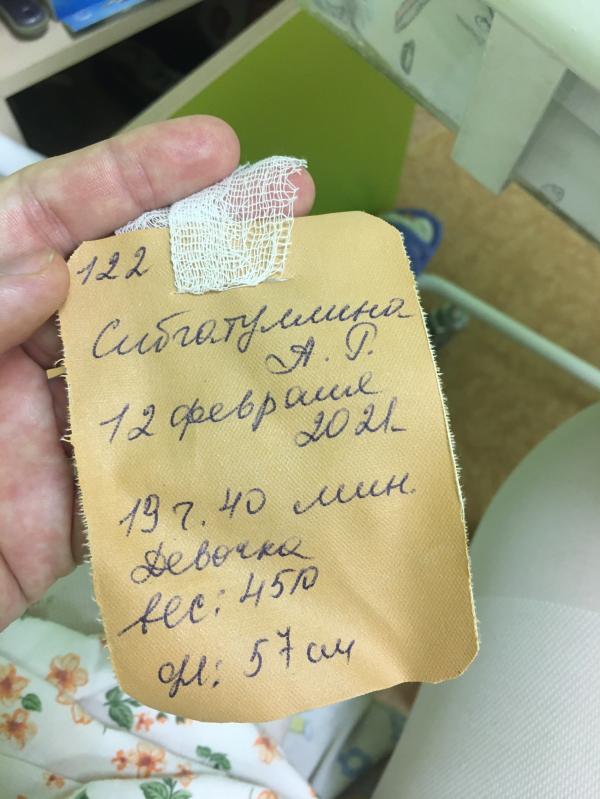 122
Сибгатуллина
А. Р.
12 февраля
2021г.
19 ч. 40 мин.
Девочка
вес: 4510
дл: 57 см